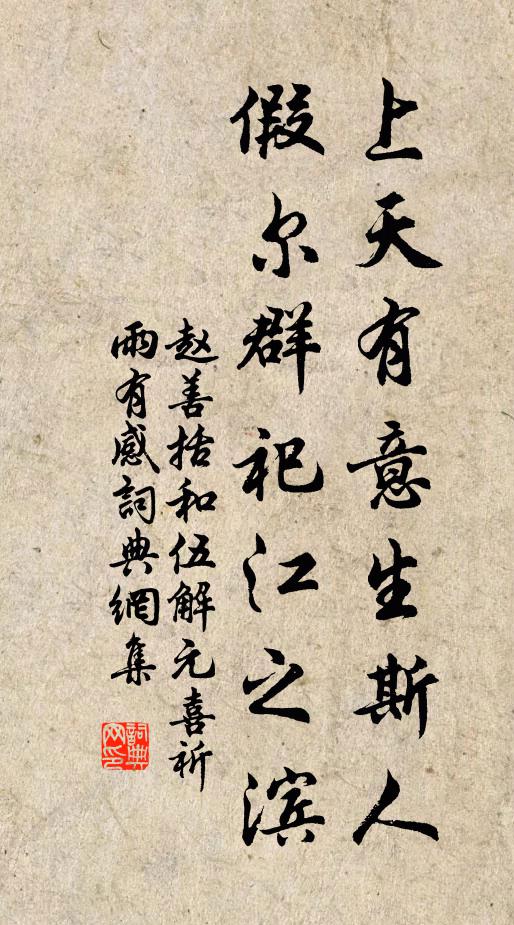 上天有意生斯人
假尔群祀江之滨
赵善括和伍解元喜祈
雨有感詞典網集
詞典
网印